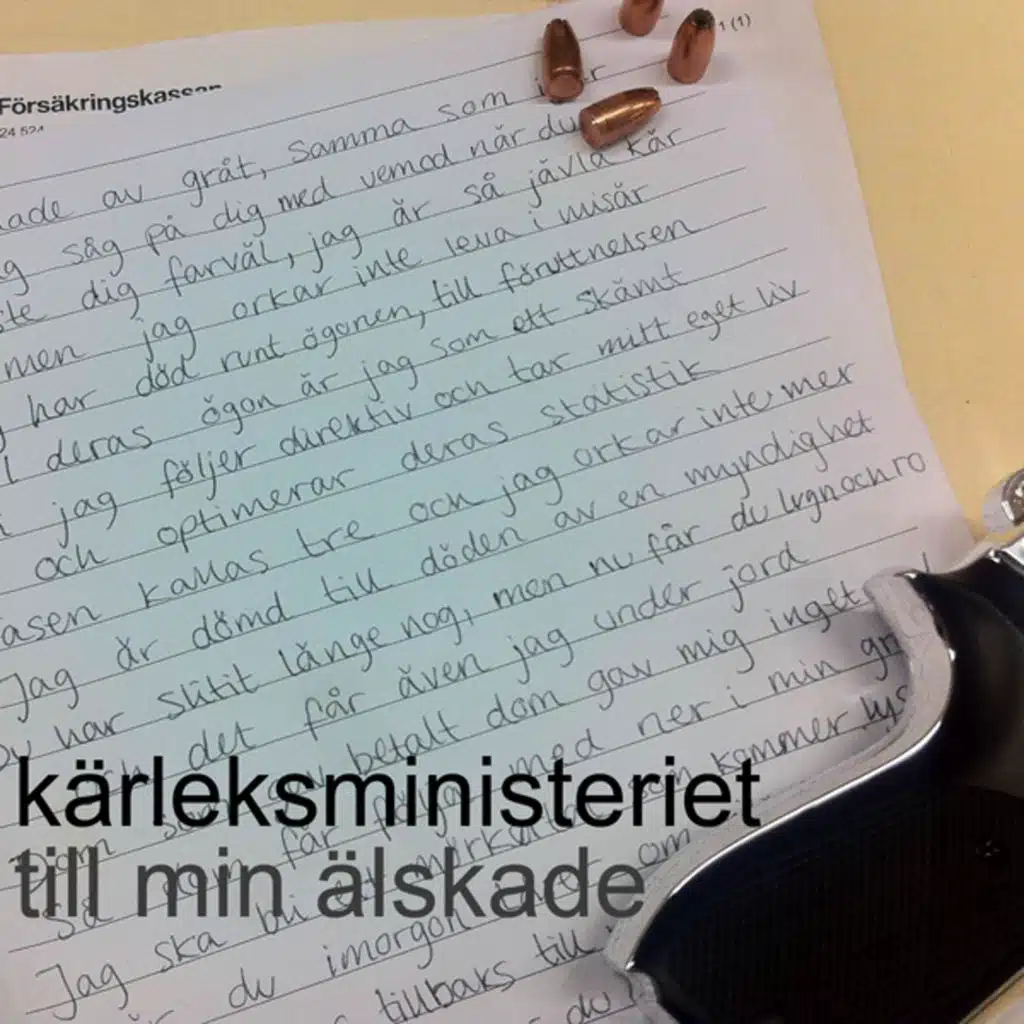 Försäkringskassan
1 (1)
24 524
av gråt, samma som
såg på dig med vemod när du
dig farväl, jag är så jävla kär
men jag orkar inte leva i misär
har död runt ögonen, till förruttnelsen
deras ögon är jag som ett skämt
jag följer direktiv och tar mitt eget liv
och optimerar deras statistik
kallas tre och jag orkar inte mer
Jag är dömd till döden av en myndighet
har slitit länge nog, men nu får du lugn och ro
det får även jag under jord
betalt dom gav mig inget
får följa med ner i min
Jag ska bli kommer
du imorgon om
tillbaks till
du
kärleksministeriet
till min älskade